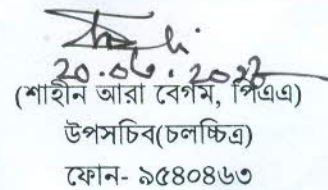 20.06.2023
(শাহীন আরা বেগম, পিএএ)
উপসচিব(চলচ্চিত্র)
ফোন- ৯৫৪০৪৬৩